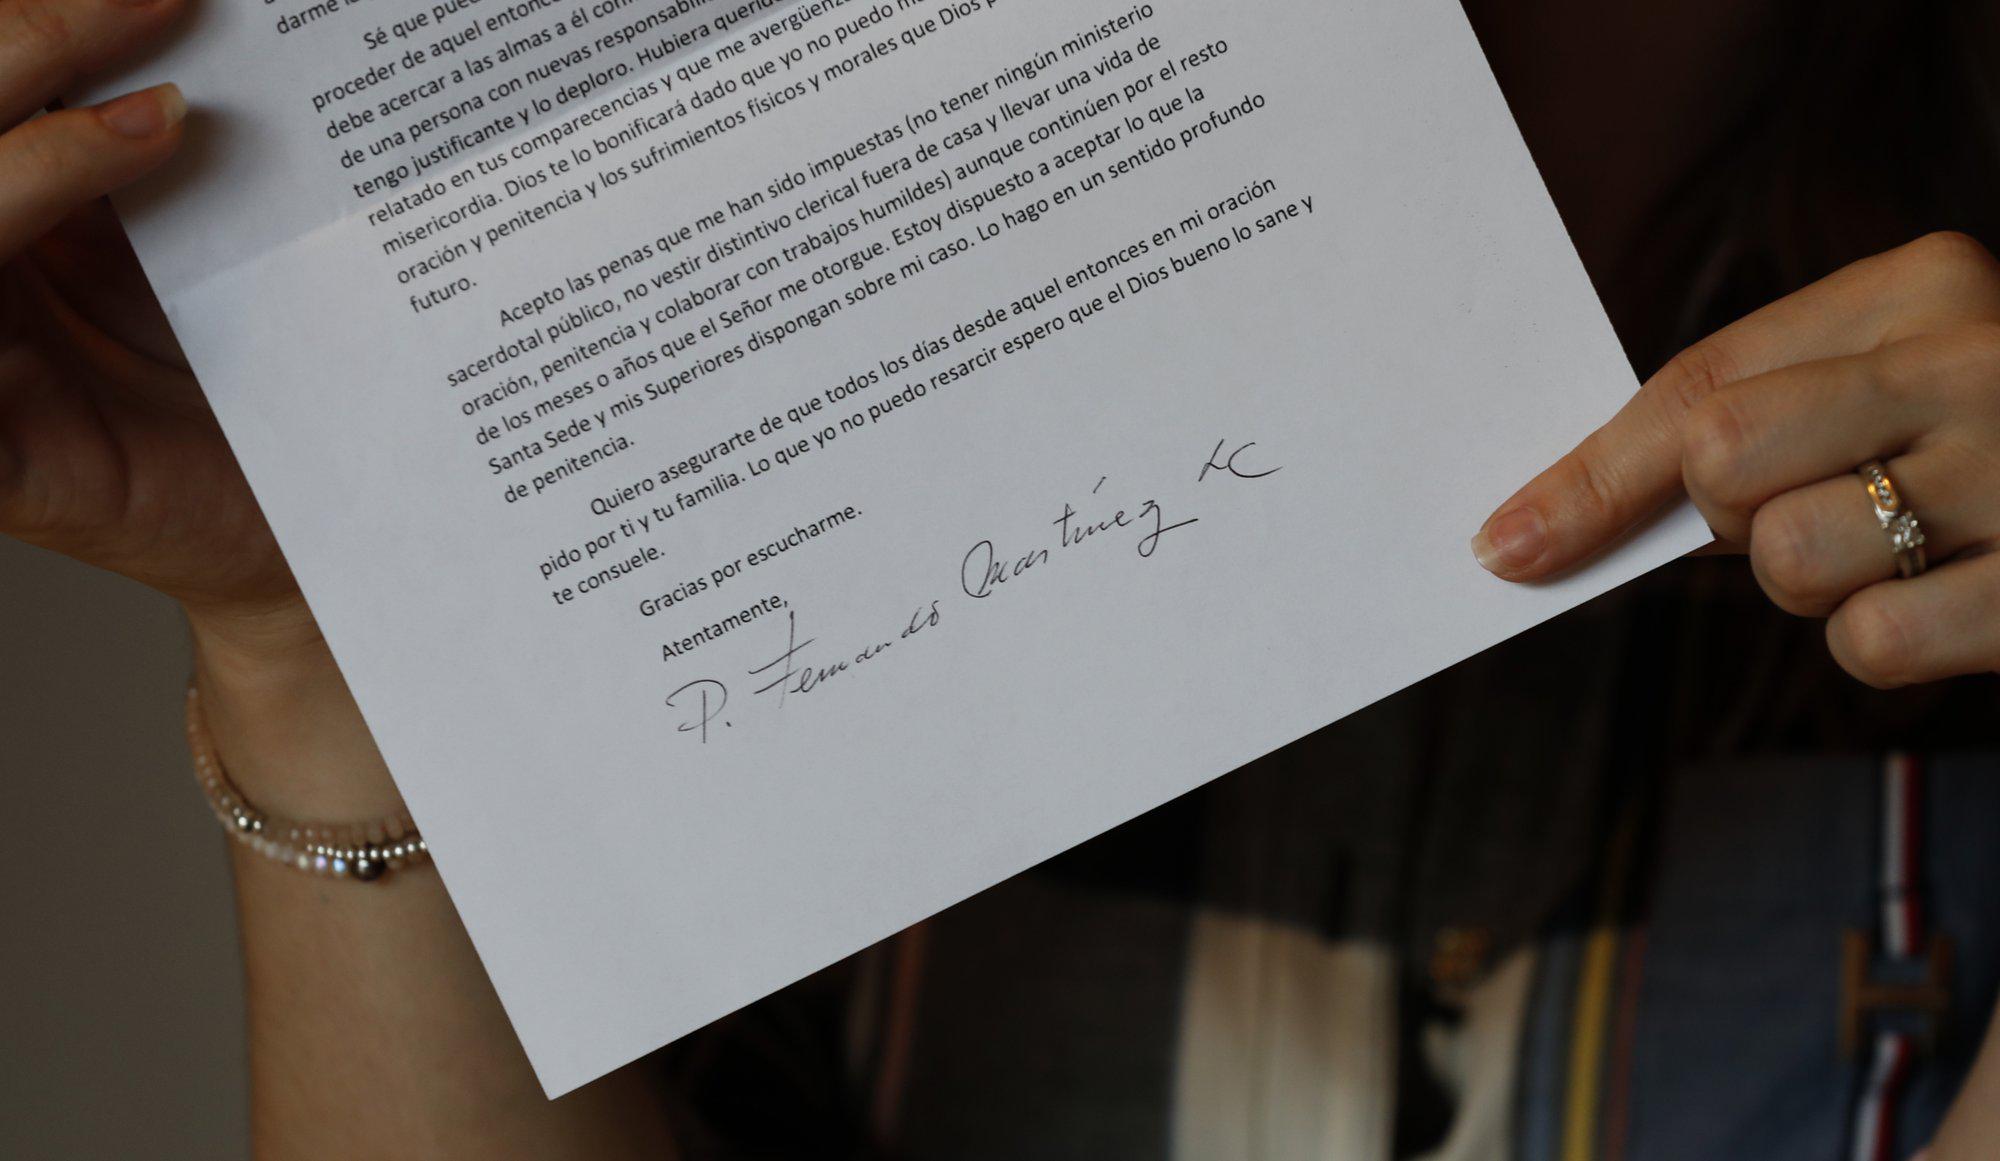 darme
Sé que
proceder de aquel entonces
debe acercar a las almas a él
de una persona con nuevas
tengo justificante y lo deploro. Hubiera querido
relatado en tus comparecencias y que me avergüenza
misericordia. Dios te lo bonificará dado que yo no puedo
oración y penitencia y los sufrimientos físicos y morales que Dios
futuro.
Acepto las penas que me han sido impuestas (no tener ningún ministerio
sacerdotal público, no vestir distintivo clerical fuera de casa y llevar una vida de
oración, penitencia y colaborar con trabajos humildes) aunque continúen por el resto
de los meses o años que el Señor me otorgue. Estoy dispuesto a aceptar lo que la
Santa Sede y mis Superiores dispongan sobre mi caso. Lo hago en un sentido profundo
de penitencia.
Quiero asegurarte de que todos los días desde aquel entonces en mi oración
pido por ti y tu familia. Lo que yo no puedo resarcir espero que el Dios bueno lo sane y
te consuele.
Gracias por escucharme.
Atentamente,
P. Fernando Martínez LC